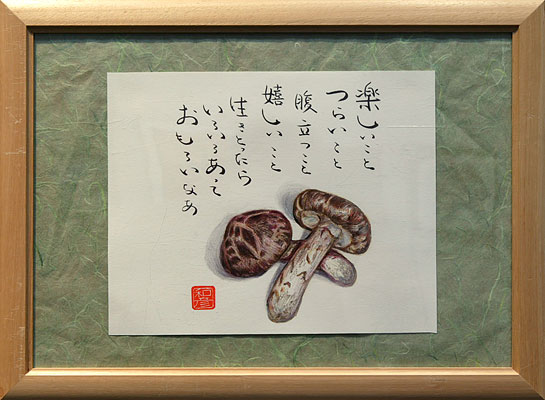 楽しいこと
つらいこと
腹立つこと
嬉しいこと
生きとったら
いろいろあって
おもろいなあ
和彦